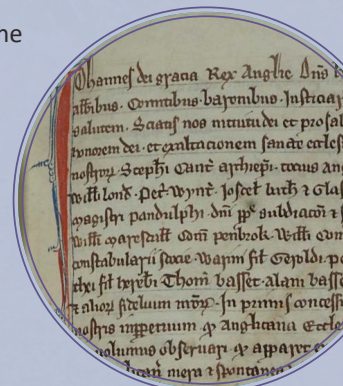 ne
Johannes dei gracia Rex Anglie Dns
abbibus. Comitibus. baronibus. Justiciar
salutem. Sciatis nos intuitu dei et pro sal
honorem dei. et exaltacionem sancte eccles
nostroȝ. Stephi Cant archiepi. tocius Ang
Willi lond. Petr Wynt. Joscel bath & Glas
magistri pandulphi. dni pp subdiaconi &
Willi marescall Com penbrok. Willi Com
constabularii scocie. Warin fil Geroldi. pe
fil herebti Thom basset. alani basse
& alioȝ fidelium nroȝ. In primis concess
nostris imperpetuum Anglicana Eccle
volumus observari apparet e
mera & spontanea